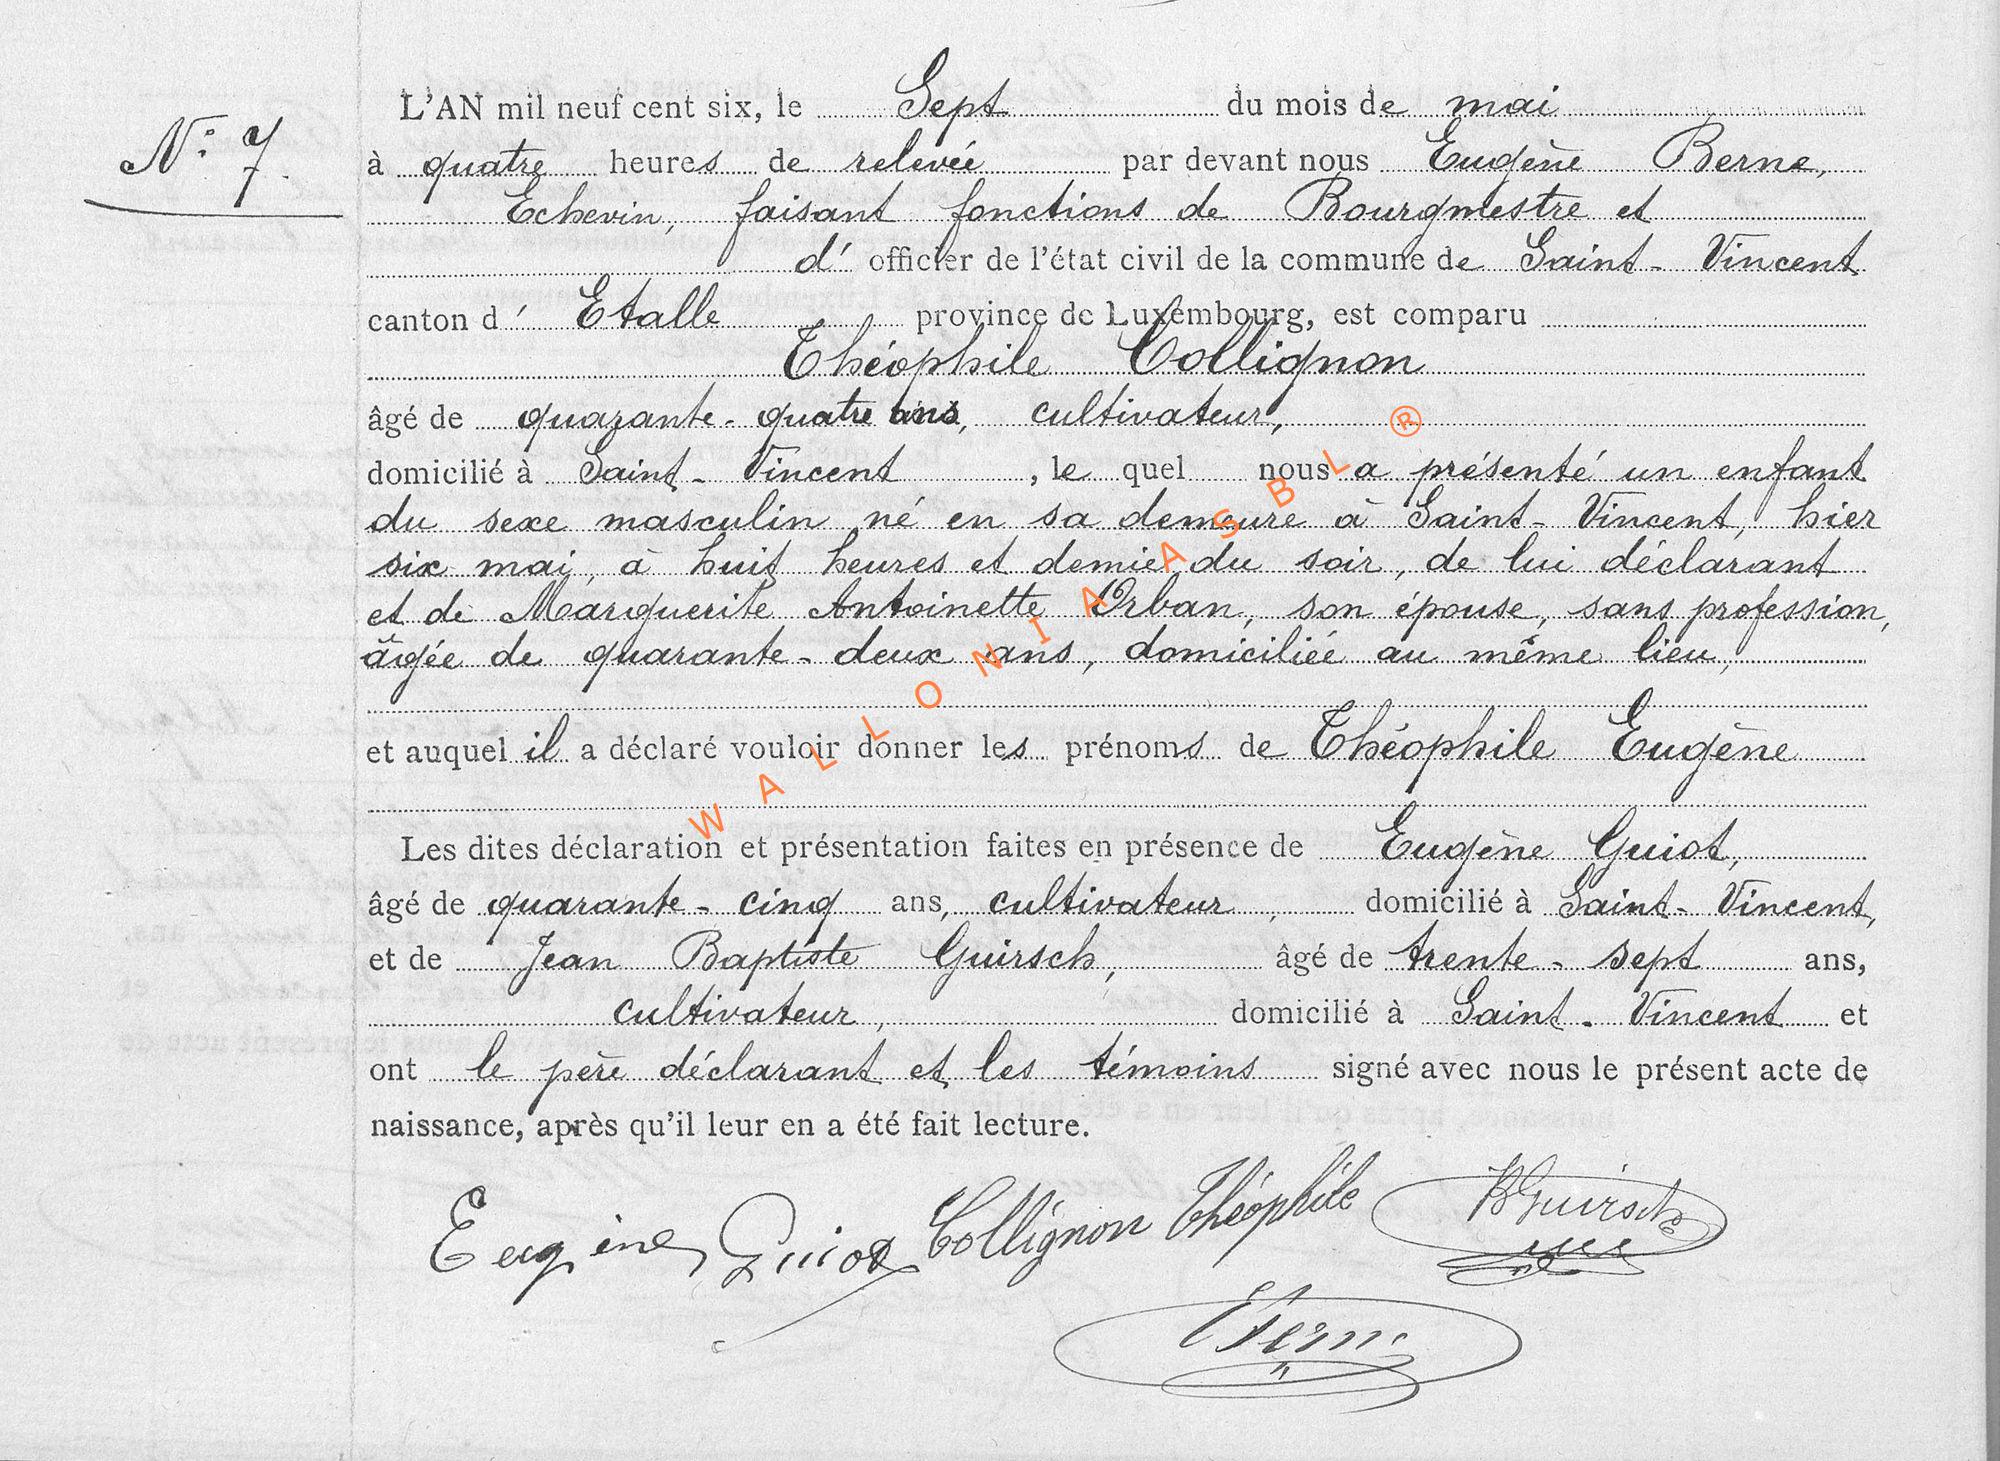 N° 7
L'AN mil neuf cent six, le Sept du mois de mai
à quatre heures de relevée par devant nous Eugène Berne,
Echevin, faisant fonctions de Bourgmestre et
d' officier de l'état civil de la commune de Saint-Vincent
canton d' Etalle province de Luxembourg, est comparu
Théophile Collignon
âgé de quarante-quatre ans, cultivateur,
domicilié à Saint-Vincent, le quel nous a présenté un enfant
du sexe masculin né en sa demeure à Saint-Vincent, hier
six mai, à huit heures et demie du soir, de lui déclarant
et de Marguerite Antoinette Orban, son épouse, sans profession,
âgée de quarante-deux ans, domiciliée au même lieu,
et auquel il a déclaré vouloir donner les prénoms de Théophile Eugène
Les dites déclaration et présentation faites en présence de Eugène Guiot,
âgé de quarante-cinq ans, cultivateur, domicilié à Saint-Vincent,
et de Jean Baptiste Guirsch, âgé de trente-sept ans,
cultivateur, domicilié à Saint-Vincent et
ont le père déclarant et les témoins signé avec nous le présent acte de
naissance, après qu'il leur en a été fait lecture.
Eugène Guiot Collignon Théophile JBGuirsch
EBerne
WALLONIA ASBL ®